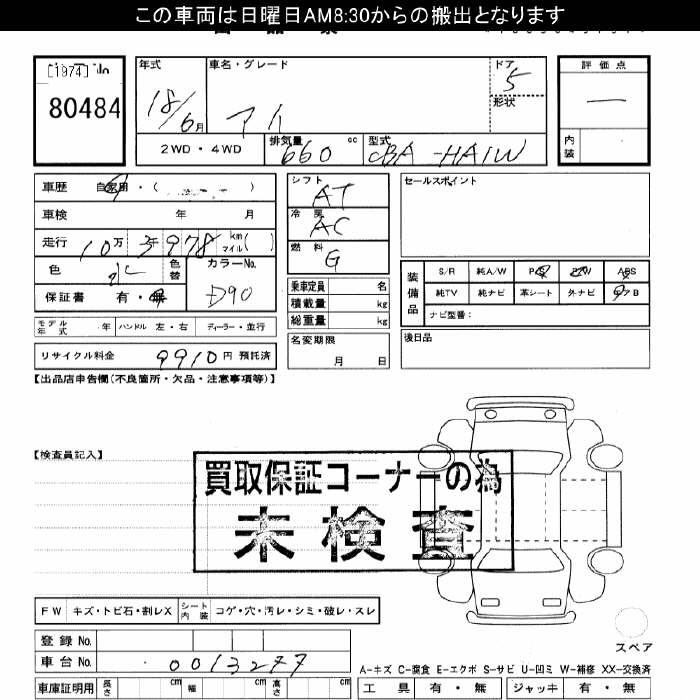 この車両は日曜日AM8:30からの搬出となります
[1974] No
80484
年式
18/6月
車名・グレード
アイ
ドア
5
形状
評価点
内装
2WD・4WD
排気量
660 cc
型式
CBA-HA1W
車歴 自家用・( )
車検 年 月
走行 10万3千978 km マイル( )
色 水
色替
カラーNo.
D90
保証書 有・無
モデル年式 年 ハンドル 左・右 ディーラー・並行
リサイクル料金 9910円 預託済
シフト
AT
冷房
AC
燃料
G
乗車定員 名
積載量 kg
総重量 kg
名変期限
月 日
セールスポイント
装備品
S/R 純A/W P/S P/W ABS
純TV 純ナビ 革シート 外ナビ エアB
ナビ型番:
後日品
【出品店申告欄(不良箇所・欠品・注意事項等)】
【検査員記入】
買取保証コーナーの為
未検査
FW キズ・トビ石・割レX シート内装 コゲ・穴・汚レ・シミ・破レ・スレ
登録No.
車台No. 0013277
車庫証明用 長さ cm 幅 cm 高さ cm
スペア
A-キズ C-腐食 E-エクボ S-サビ U-凹ミ W-補修 XX-交換済
工具 有・無 ジャッキ 有・無